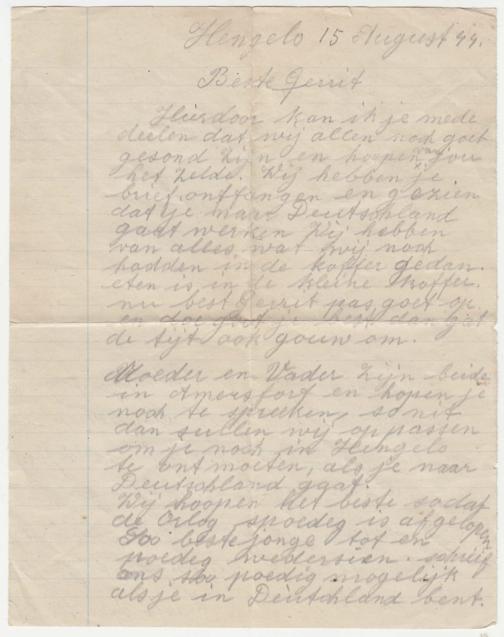 Hengelo 15 August 44.
Beste Gerrit
Hierdoor kan ik je mede
deelen dat wij allen noch goet
gesond zijn en hoopen van jou
het zelde. Wij hebben je
brief ontfangen en gezien
dat je naar Deutschland
gaat werken Wij hebben
van alles wat wij noch
hadden in de koffer gedan.
eten is in de kleine koffer.
nu best Gerrit pas goet op
en doe je best dan gat
de tijt ook gouw om.
Moeder en Vader zijn beide
in Amersfort en hopen je
noch te spreeken, so nit
dan sullen wij op passen
om je noch in Hengelo
te ontmoeten, als je naar
Deutschland gaat.
Wij hoopen het beste sodat
de Orlog spoedeg is afgelopen
Soo beste jonge tot en
poedig wedersien. schrief
ons soo poedig mogelijk
als je in Deutschland bent.